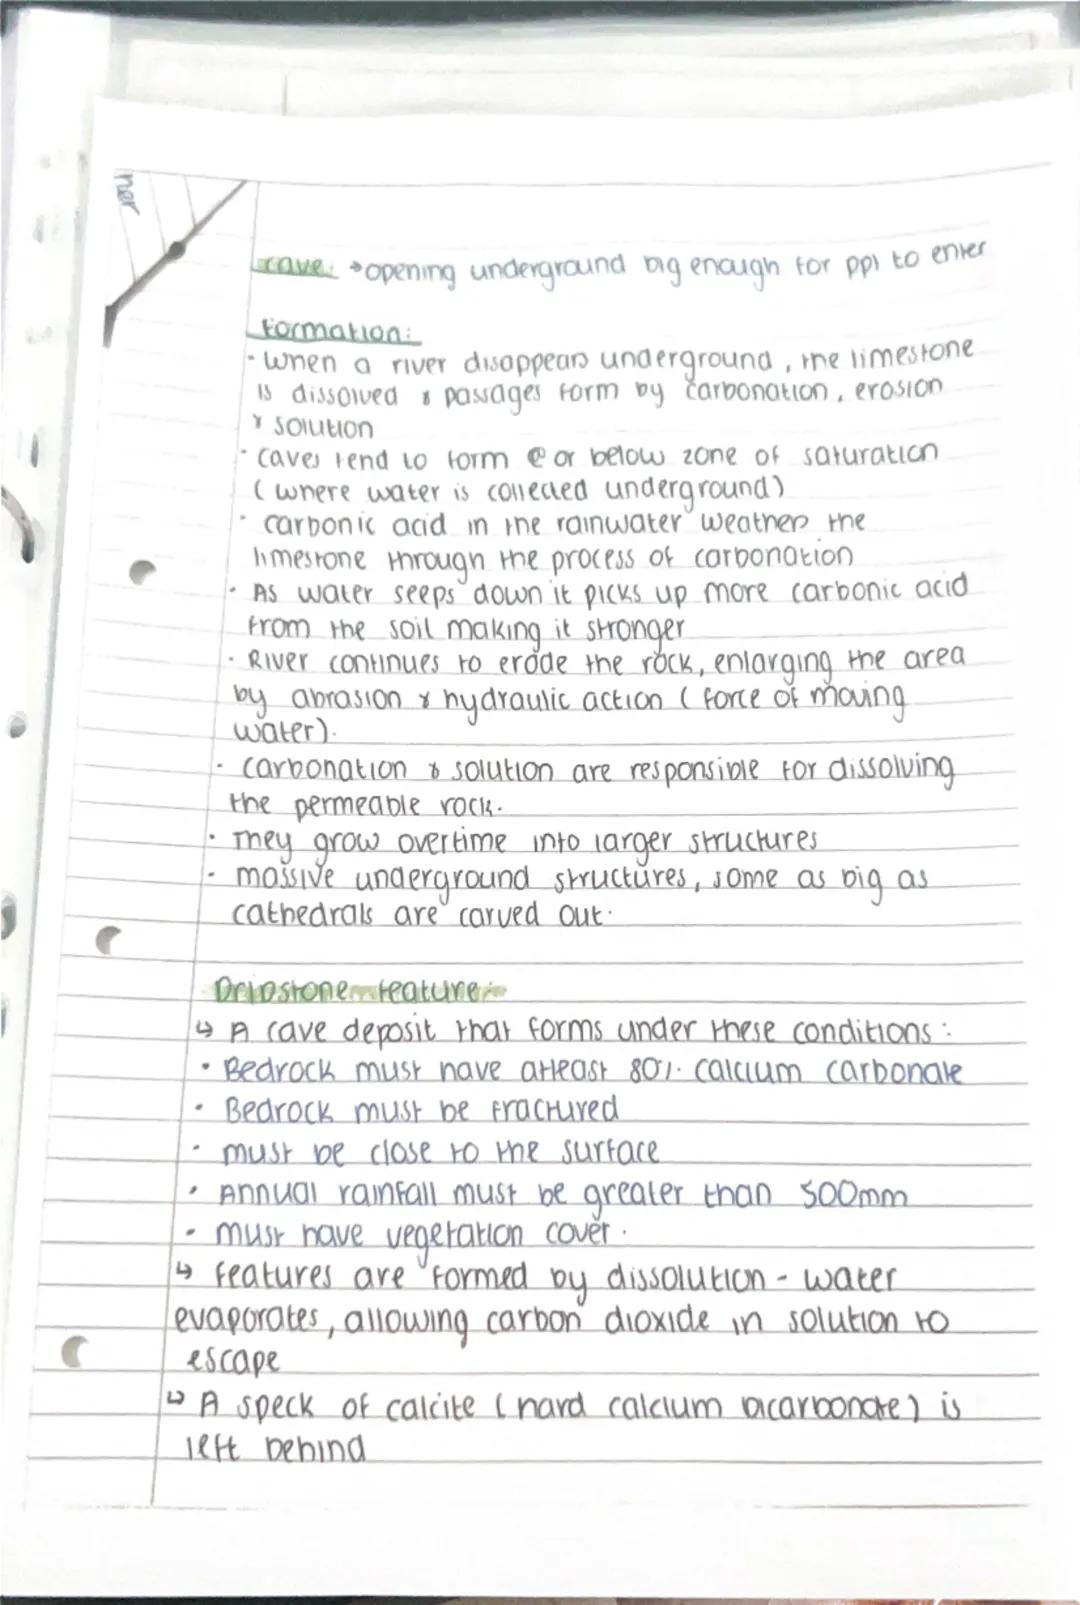 ner
cave: → opening underground big enough for ppl to enter
Formation:
- When a river disappears underground, the limestone
is dissolved & passages form by carbonation, erosion
& solution
· caves tend to form @ or below zone of saturation
(where water is collected underground)
· carbonic acid in the rainwater weathers the
limestone through the process of carbonation
· As water seeps down it picks up more carbonic acid
from the soil making it stronger
· River continues to erode the rock, enlarging the area
by abrasion & hydraulic action (force of moving
water).
· carbonation & solution are responsible for dissolving
the permeable rock.
· They grow overtime into larger structures
· massive underground structures, some as big as
cathedrals are carved out.
Dripstone feature:
↳ A cave deposit that forms under these conditions:
· Bedrock must have atleast 80% calcium carbonate
· Bedrock must be fractured
· must be close to the surface
· Annual rainfall must be greater than 500mm
· must have vegetation cover.
↳ features are formed by dissolution - water
evaporates, allowing carbon dioxide in solution to
escape
↳ A speck of calcite (hard calcium bicarbonate) is
left behind